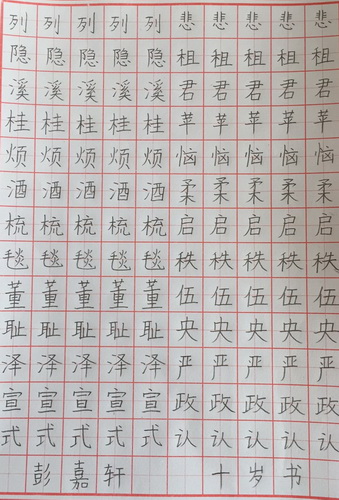 列列列列列悲悲悲悲悲
隐隐隐隐隐租租租租租
溪溪溪溪溪君君君君君
桂桂桂桂桂苹苹苹苹苹
烦烦烦烦烦恼恼恼恼恼
酒酒酒酒酒柔柔柔柔柔
梳梳梳梳梳启启启启启
毯毯毯毯毯秩秩秩秩秩
董董董董董伍伍伍伍伍
耻耻耻耻耻央央央央央
泽泽泽泽泽严严严严严
宣宣宣宣宣政政政政政
式式式式式认认认认认
彭嘉轩 十岁书